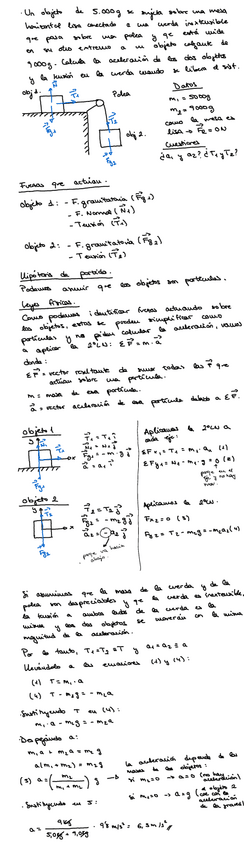 · Un objeto de 5.000g se sujeta sobre una mesa
horizontal lisa conectado a una cuerda inextensible
que pasa sobre una polea y que está unida
en su otro extremo a un objeto colgante de
9000g. Calcula la aceleración de los dos objetos
y la tensión en la cuerda cuando se libera el sist.
obj 1.
Polea
obj 2.
Datos
m₁ = 5000g
m₂ = 9000g
como la mesa es
lisa → Fr = 0N
Cuestiones
¿a₁ y a₂? ¿T₁ y T₂?
Fuerzas que actúan.
Objeto 1: - F. gravitatoria (Fg₁)
- F. Normal (N₁)
- Tensión (T₁)
Objeto 2: - F. gravitatoria (Fg₂)
- Tensión (T₂)
Hipótesis de partida.
Podemos asumir que los objetos son partículas.
Leyes físicas.
Como podemos identificar fuerzas actuando sobre
los objetos, estos se pueden simplificar como
partículas y nos piden calcular la aceleración, vamos
a aplicar la 2ª LN: ΣF = m·a
donde:
ΣF = vector resultante de sumar todas las F que
actúan sobre una partícula.
m = masa de esa partícula.
a = vector aceleración de esa partícula debido a ΣF.
objeto 1
Aplicamos la 2ªLN a
objeto 2
Aplicamos la 2ªLN.
Si asumimos que la masa de la cuerda y de la
polea son despreciables y que la cuerda es inextensible,
la tensión a ambos lados de la cuerda es la
misma y los dos objetos se moverán con la misma
magnitud de la aceleración.
Por lo tanto, T₁ = T₂ ≡ T y a₁ = a₂ ≡ a
Llevándolo a las ecuaciones (1) y (4):
(1) T = m₁·a
(4) T - m₂g = -m₂a
·Sustituyendo T en (4):
m₁·a - m₂g = -m₂a
·Despejando a:
m₁a + m₂a = m₂g
a(m₁+m₂) = m₂g
(5) a = (m₂/(m₁+m₂)) g →
la aceleración depende de las
masas de los objetos:
si m₂=0 → a=0 (no hay
aceleración)
si m₁=0 → a=g
·Sustituyendo en 5: